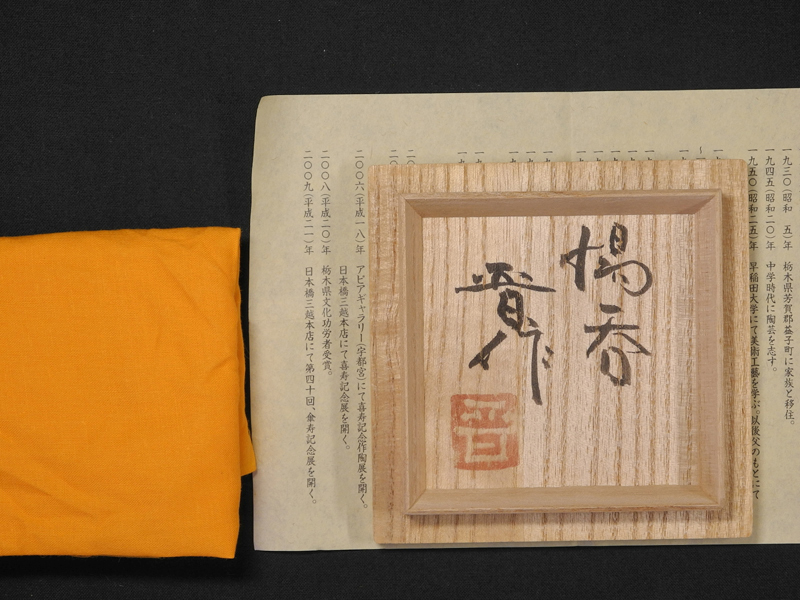 一九三〇(昭和 五)年 栃木県芳賀郡益子町に家族と移住。
一九四五(昭和二〇)年 中学時代に陶芸を志す。
一九五〇(昭和二五)年 早稲田大学にて美術工藝を学ぶ。以後父のもとにて
湯呑
晋作
晋
二〇〇六(平成一八)年 アピアギャラリー(宇都宮)にて喜寿記念作陶展を開く。
日本橋三越本店にて喜寿記念展を開く。
二〇〇八(平成二〇)年 栃木県文化功労者受賞。
二〇〇九(平成二一)年 日本橋三越本店にて第四十回、傘寿記念展を開く。